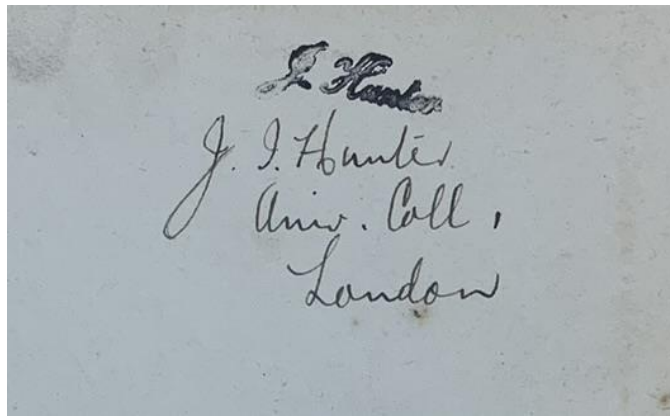 J. Hunter
J. I. Hunter
Univ. Coll,
London